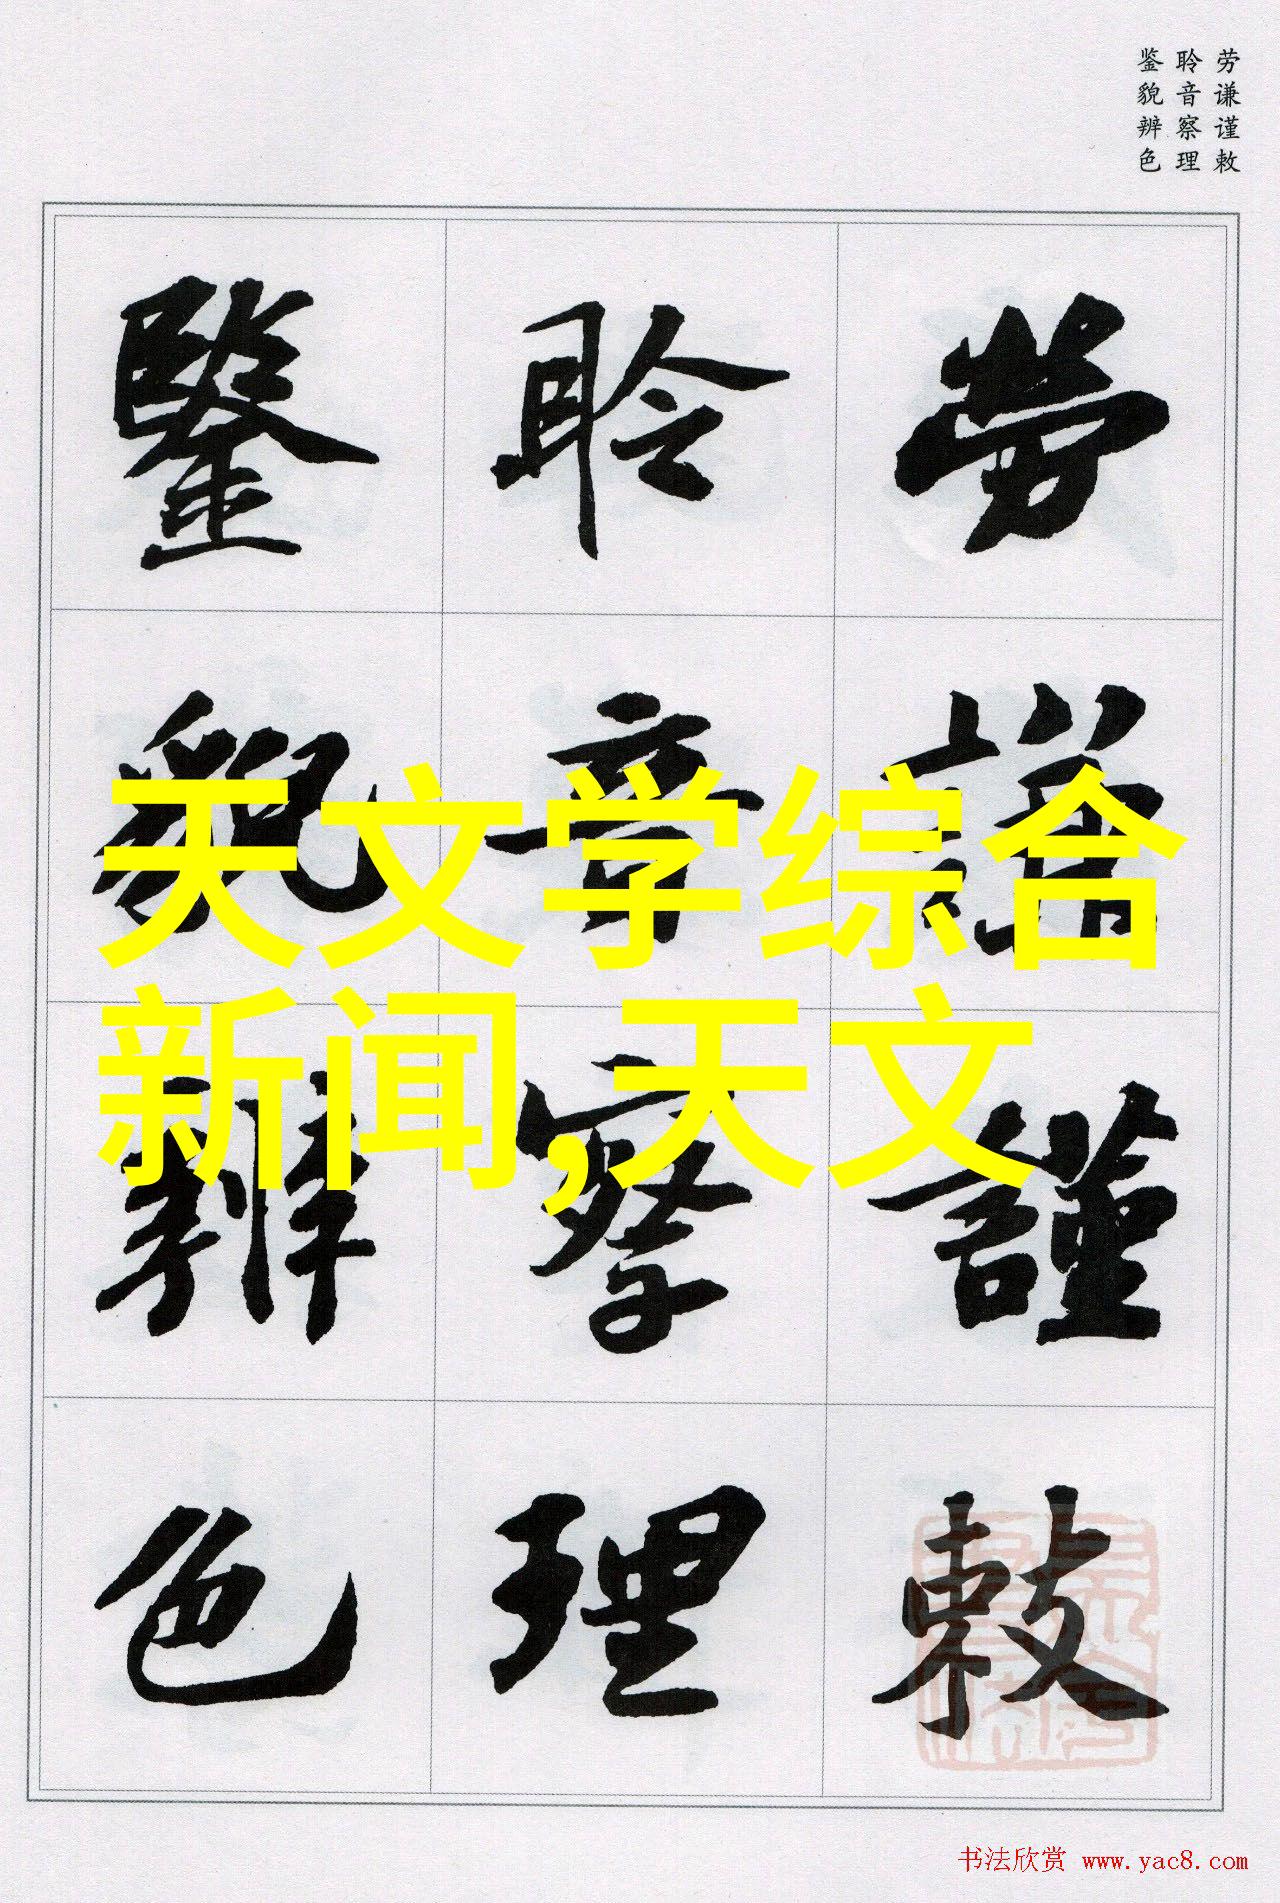 劳谦谨敕
聆音察理
鉴貌辨色
劳謙謹敕
聆音察理
鑒貌辨色
天文学综合
新闻,天文
书法欣赏 www.yac8.com